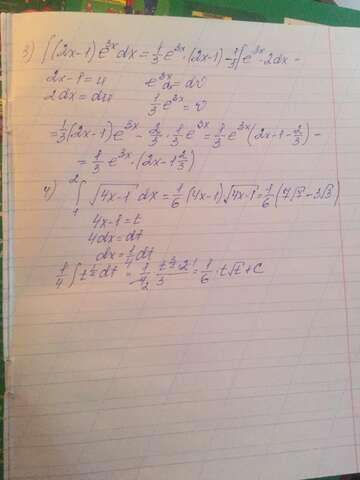 3) ∫(2x-1)e^{3x}dx = 1/3 e^{3x}·(2x-1) - 1/3∫e^{3x}·2dx =
2x-1=u e^{3x}dx=dv
2dx=du 1/3 e^{3x}=v
= 1/3(2x-1)e^{3x} - 2/3·1/3 e^{3x} = 1/3 e^{3x}(2x-1-2/3) =
= 1/3 e^{3x}·(2x-1 2/3)
4) ∫_1^2 √(4x-1) dx = 1/6(4x-1)√(4x-1) = 1/6(7√7-3√3)
4x-1=t
4dx=dt
dx=1/4 dt
1/4∫t^{1/2}dt = 1/4 · t^{3/2}·2/3 = 1/6·t√t+C